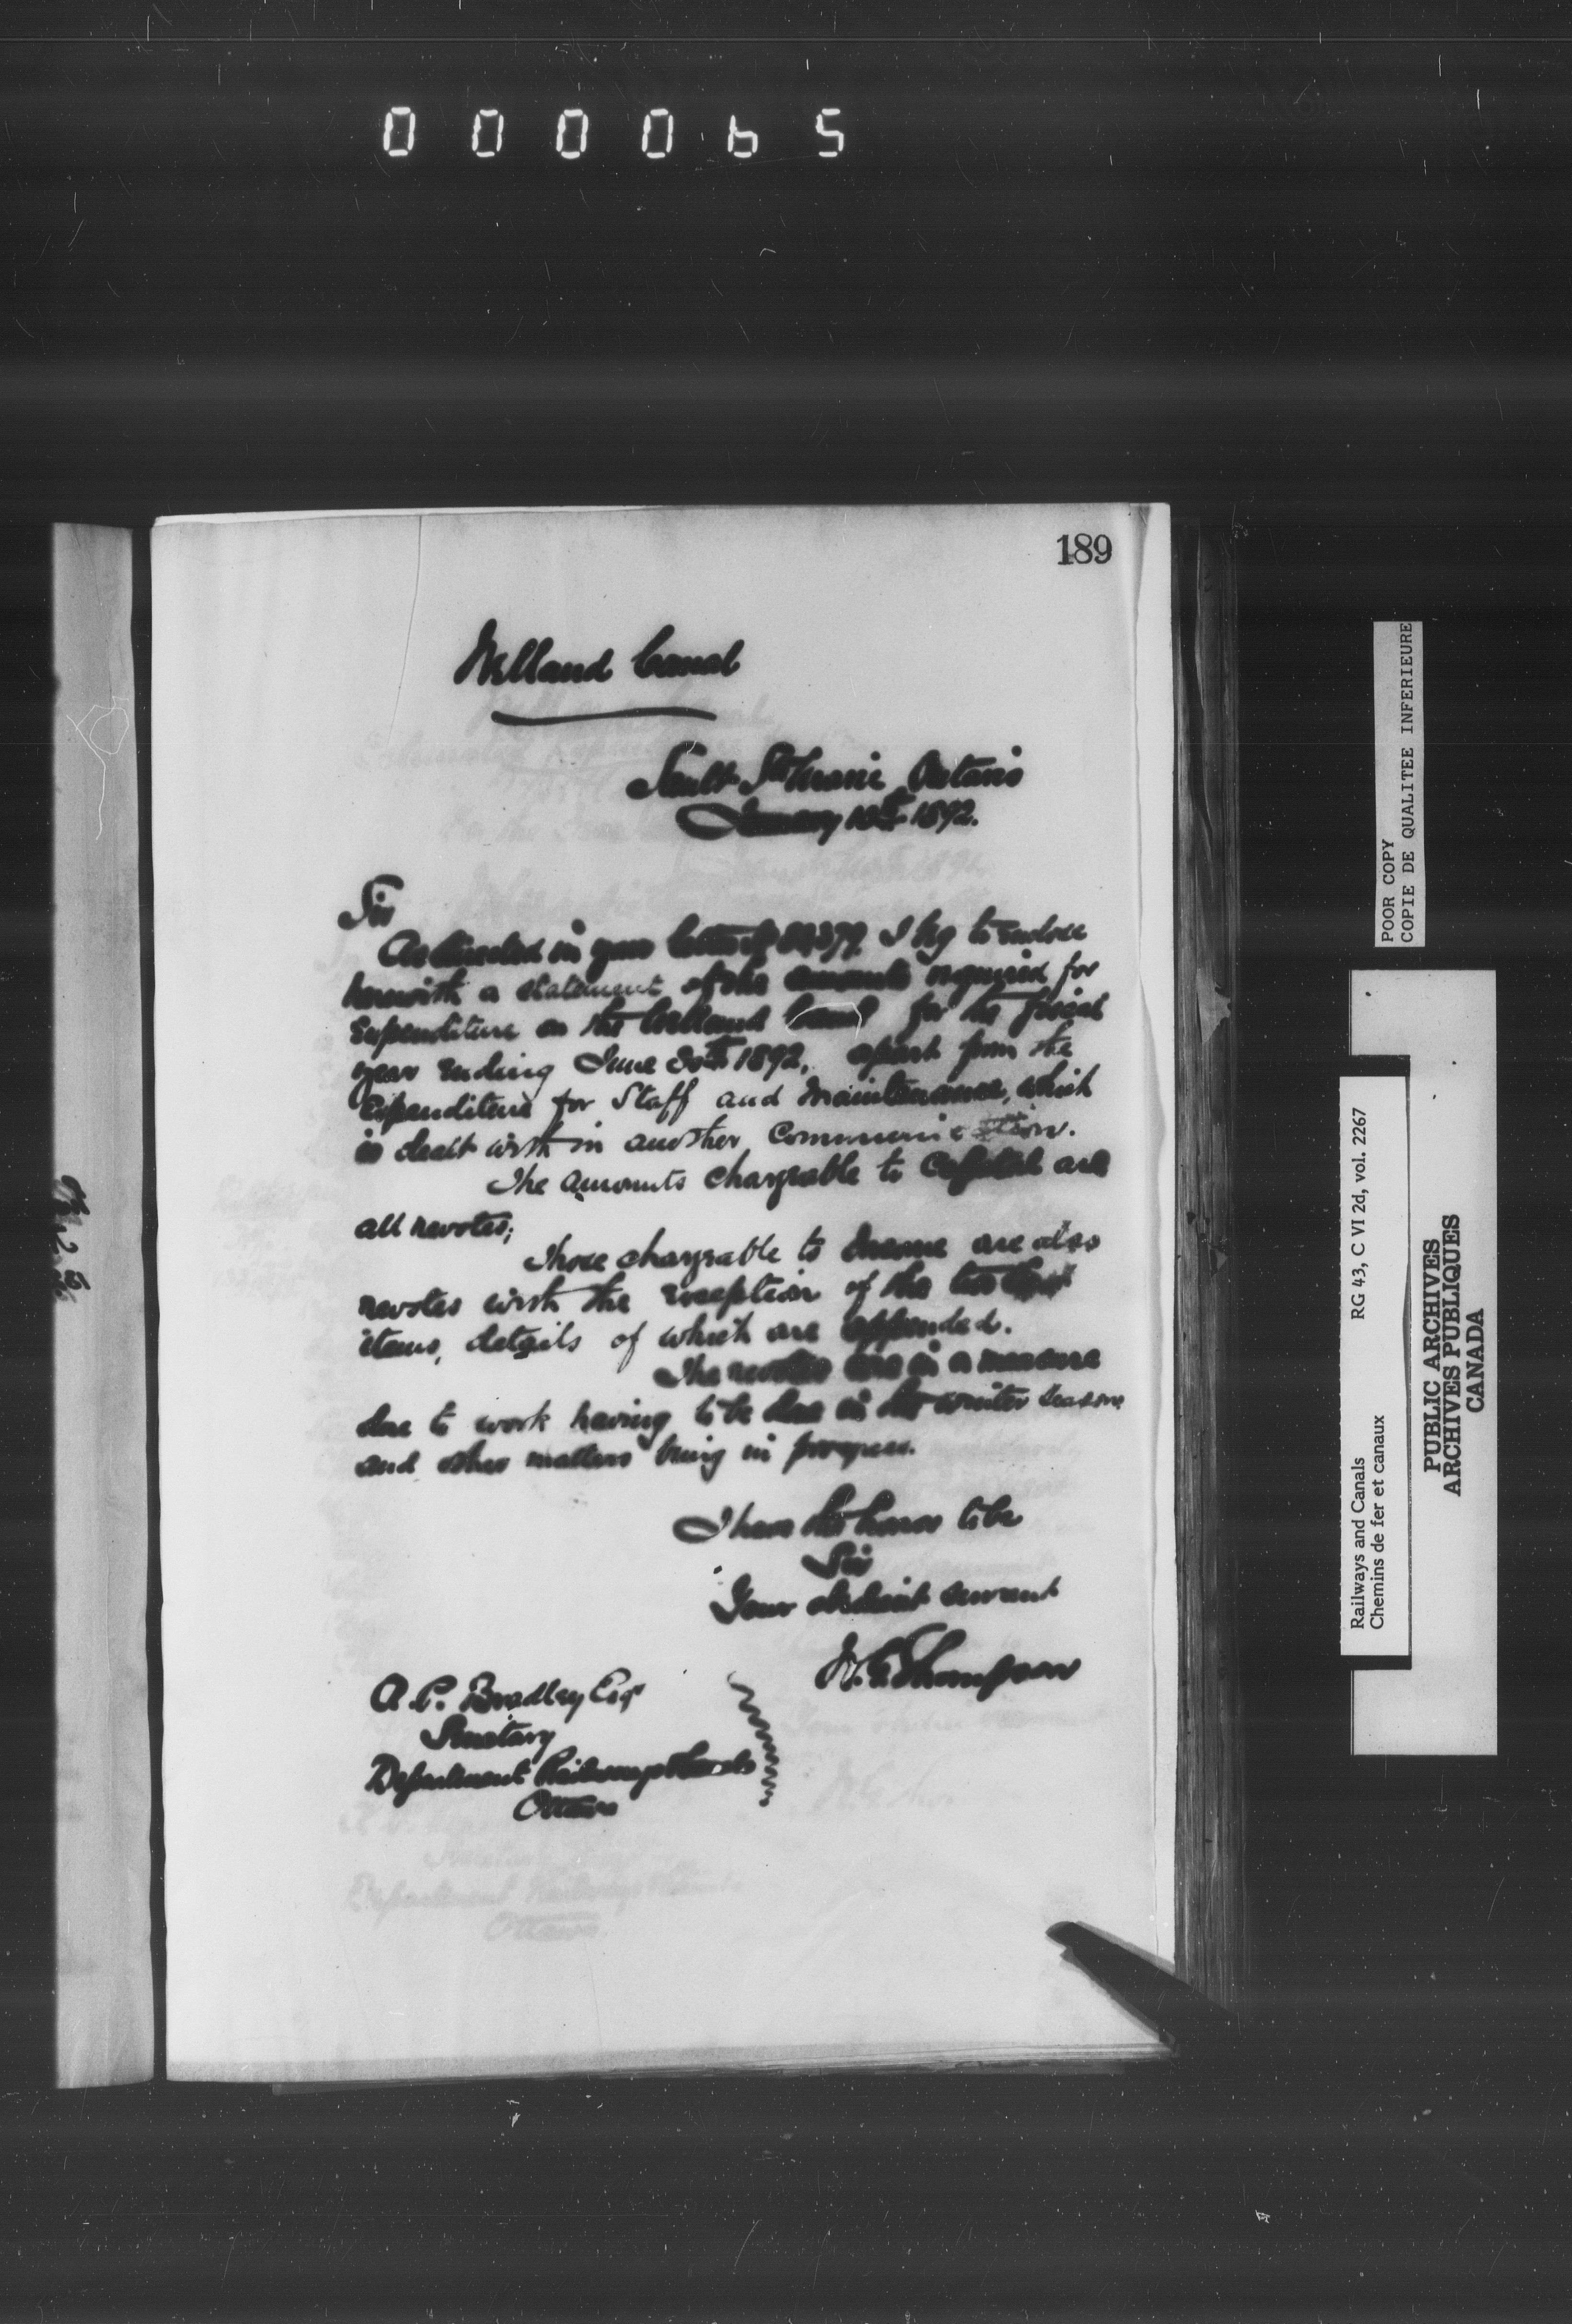 000065
189
Welland Canal
Sault Ste Marie Ontario
January 18th 1892.
Sir
As directed in your letter I beg to enclose
herewith a statement of the amounts required for
expenditure on the Welland Canal for the fiscal
year ending June 30th 1892, apart from the
Expenditure for Staff and Maintenance, which
is dealt with in another Communication.
The amounts chargeable to Capital are
all revotes;
Those chargeable to Income are also
revotes with the exception of the two last
items, details of which are appended.
The revotes are in a measure
due to work having to be done in the winter season
and other matters being in progress.
I have the honor to be
Sir
Your obedient servant
W. G. Thompson
A. P. Bradley Esqr
Secretary
Department Railways & Canals
Ottawa
POOR COPY
COPIE DE QUALITEE INFERIEURE
Railways and Canals RG 43, C VI 2d, vol. 2267
Chemins de fer et canaux
PUBLIC ARCHIVES
ARCHIVES PUBLIQUES
CANADA